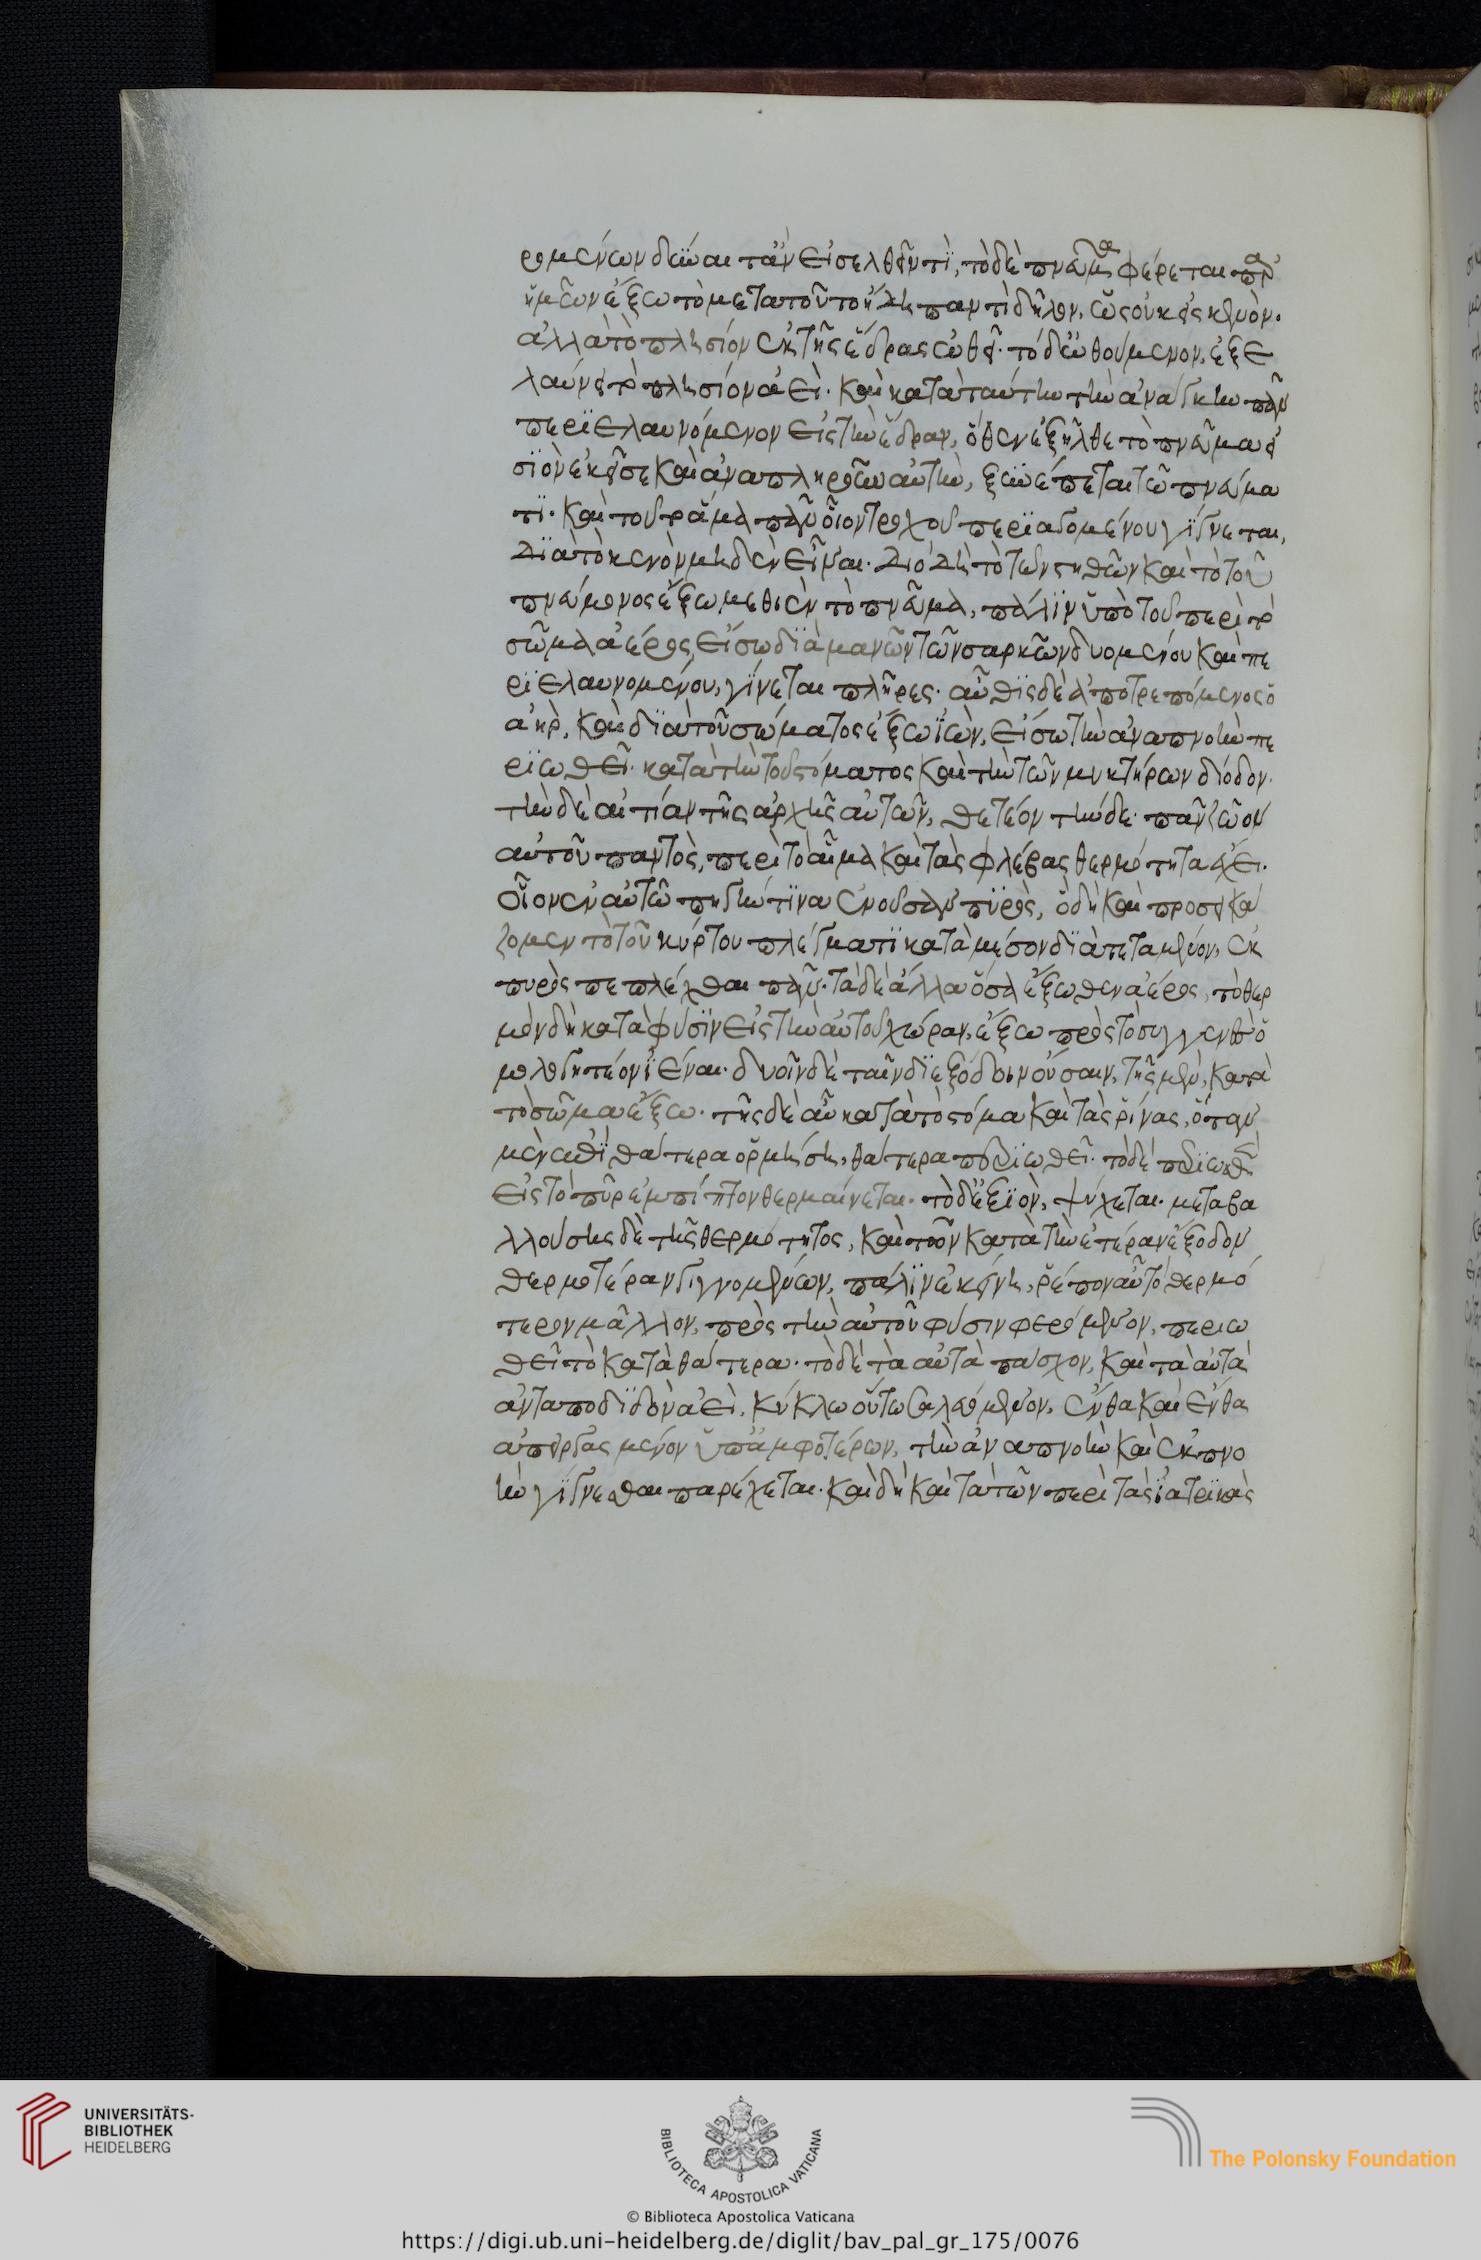 ρομένων δύναιτ' ἂν εἰσελθεῖν τὶ, τὸ δὲ πνεῦμα φέρεται παρ'
ἡμῶν ἔξω τὸ μετὰ τοῦτο ἤδη παντὶ δῆλον, ὡς οὐκ εἰς κενὸν.
ἀλλὰ τὸ πλησίον ἐκ τῆς ἕδρας ὠθεῖ. τὸ δ' ὠθούμενον, ἐξε
λαύνει τὸ πλησίον ἀεὶ. καὶ κατὰ ταύτην τὴν ἀνάγκην πᾶν
περιελαυνόμενον εἰς τὴν ἕδραν, ὅθεν ἐξῆλθε τὸ πνεῦμα εἰ
σϊὸν ἐκεῖσε καὶ ἀναπληροῦν αὐτὴν, ξυνέπεται τῶ πνεύμα
τϊ. καὶ τοῦτο ἅμα πᾶν οἷον τροχοῦ περϊαγομένου γίγνεται,
διὰ τὸ κενὸν μηδὲν εἶναι. διὸ δὴ τὸ τῶν στηθῶν καὶ τὸ τοῦ
πνεύμονος ἔξω μεθιὲν τὸ πνεῦμα, πάλϊν ὑπὸ τοῦ περὶ τὸ
σῶμα ἀέρος, εἴσω διὰ μανῶν τῶν σαρκῶν δυομένου καὶ πε
ρϊελαυνομένου, γίνεται πλῆρες. αὖθϊς δὲ ἀποτρεπόμενος ὁ
ἀὴρ, καὶ διὰ τοῦ σώματος ἔξω ἰὼν, εἴσω τὴν ἀναπνοὴν πε
ρϊωθεῖ. κατὰ τὴν τοῦ στόματος καὶ τὴν τῶν μυκτήρων δίοδον.
τὴν δὲ αἰτίαν τῆς ἀρχῆς αὐτῶν, θετέον τήνδε. πᾶν ζῶον
αὐτοῦ παντὸς, περὶ τὸ αἷμα καὶ τὰς φλέβας θερμότητα ἔχει.
οἷον ἐν αὐτῶ πηγήν τινα ἐνοῦσαν πυρὸς, ὃ δὴ καὶ προσεικά
ζομεν τῶ τοῦ κύρτου πλέγματϊ κατὰ μέσον διὰ πεταμένον, ἐκ
πυρὸς πεπλέχθαι πᾶν. τὰ δὲ ἄλλα ὅσα ἔξωθεν ἀέρος, τὸ θερ
μὸν δὴ κατὰ φύσϊν εἰς τὴν αὐτοῦ χώραν, ἔξω πρὸς τὸ συγγενὲς ὁ
μολογητέον ἰέναι. δυοῖν δὲ ταῖν διεξόδοιν οὔσαιν, τῆς μὲν, κατὰ
τὸ σῶμα ἔξω. τῆς δὲ αὖ κατὰ τὸ στόμα καὶ τὰς ῥῖνας, ὅταν
μὲν ἐπὶ θάτερα ὁρμήση, θάτερα περϊωθεῖ. τὸ δὲ περϊωσθὲν
εἰς τὸ πῦρ ἐμπίπτον θερμαίνεται. τὸ δ' ἐξϊὸν, ψύχεται. μεταβα
λλούσης δὲ τῆς θερμότητος, καὶ τῶν κατὰ τὴν ἑτέραν ἔξοδον
θερμοτέραν γιγνομένων, πάλϊν ἐκείνη, ῥέπον αὖ τὸ θερμό
τερον μᾶλλον, πρὸς τὴν αὐτοῦ φύσιν φερόμενον, περιω
θεῖ τὸ κατὰ θάτερα. τὸ δὲ τὰ αὐτὰ πάσχον, καὶ τὰ αὐτὰ
ἀνταποδϊδὸν ἀεὶ, κύκλω οὕτω σαλευόμενον, ἔνθα καὶ ἔνθα
ἀπειργασμένον ὑπ' ἀμφοτέρων, τὴν ἀναπνοὴν καὶ ἐκπνο
ὴν γίγνεσθαι παρέχεται. καὶ δὴ καὶ τὰ τῶν περὶ τὰς ἰατρϊκὰς
UNIVERSITÄTS-
BIBLIOTHEK
HEIDELBERG
BIBLIOTECA APOSTOLICA VATICANA
© Biblioteca Apostolica Vaticana
The Polonsky Foundation
https://digi.ub.uni-heidelberg.de/diglit/bav_pal_gr_175/0076